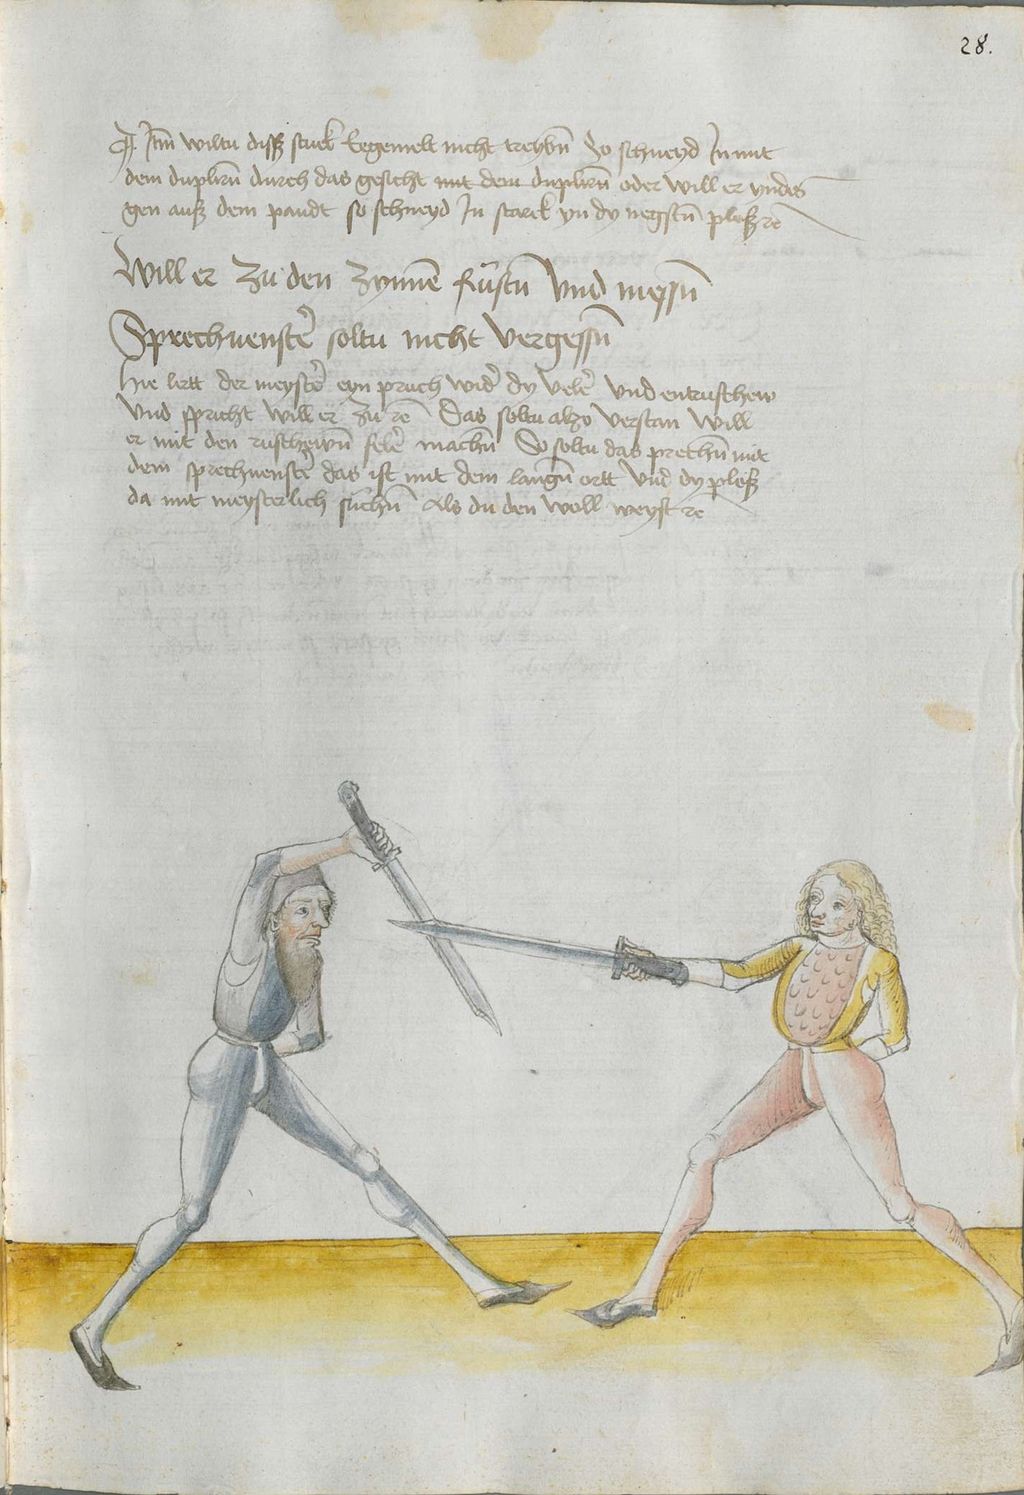 28.
Jtm wiltu diß stuck legenielt nicht treybn̄ So schneyd Jn mit
dem duplirn̄ durch das gesicht mit dem duplirn̄ oder will er vndes
gen auß dem pandt so schneyd Jn starck yn dy negstn̄ plöß re
Will er zu den zynnē fūstn̄ vnd messn̄
Sprechuenster soltu nicht vergessn̄
Hie lertt der meyster eyn pruch wider dy veler vnd entruschew
vnd spricht will er zu re Das soltu also verstan Will
er mit den ruschewn̄ feler machn̄ So soltu das prechn̄ mit
dem sprechuenster das ist mit dem langn̄ ortt vnd dy plöß
da mit meysterlich suchn̄ Als du den woll weyst re